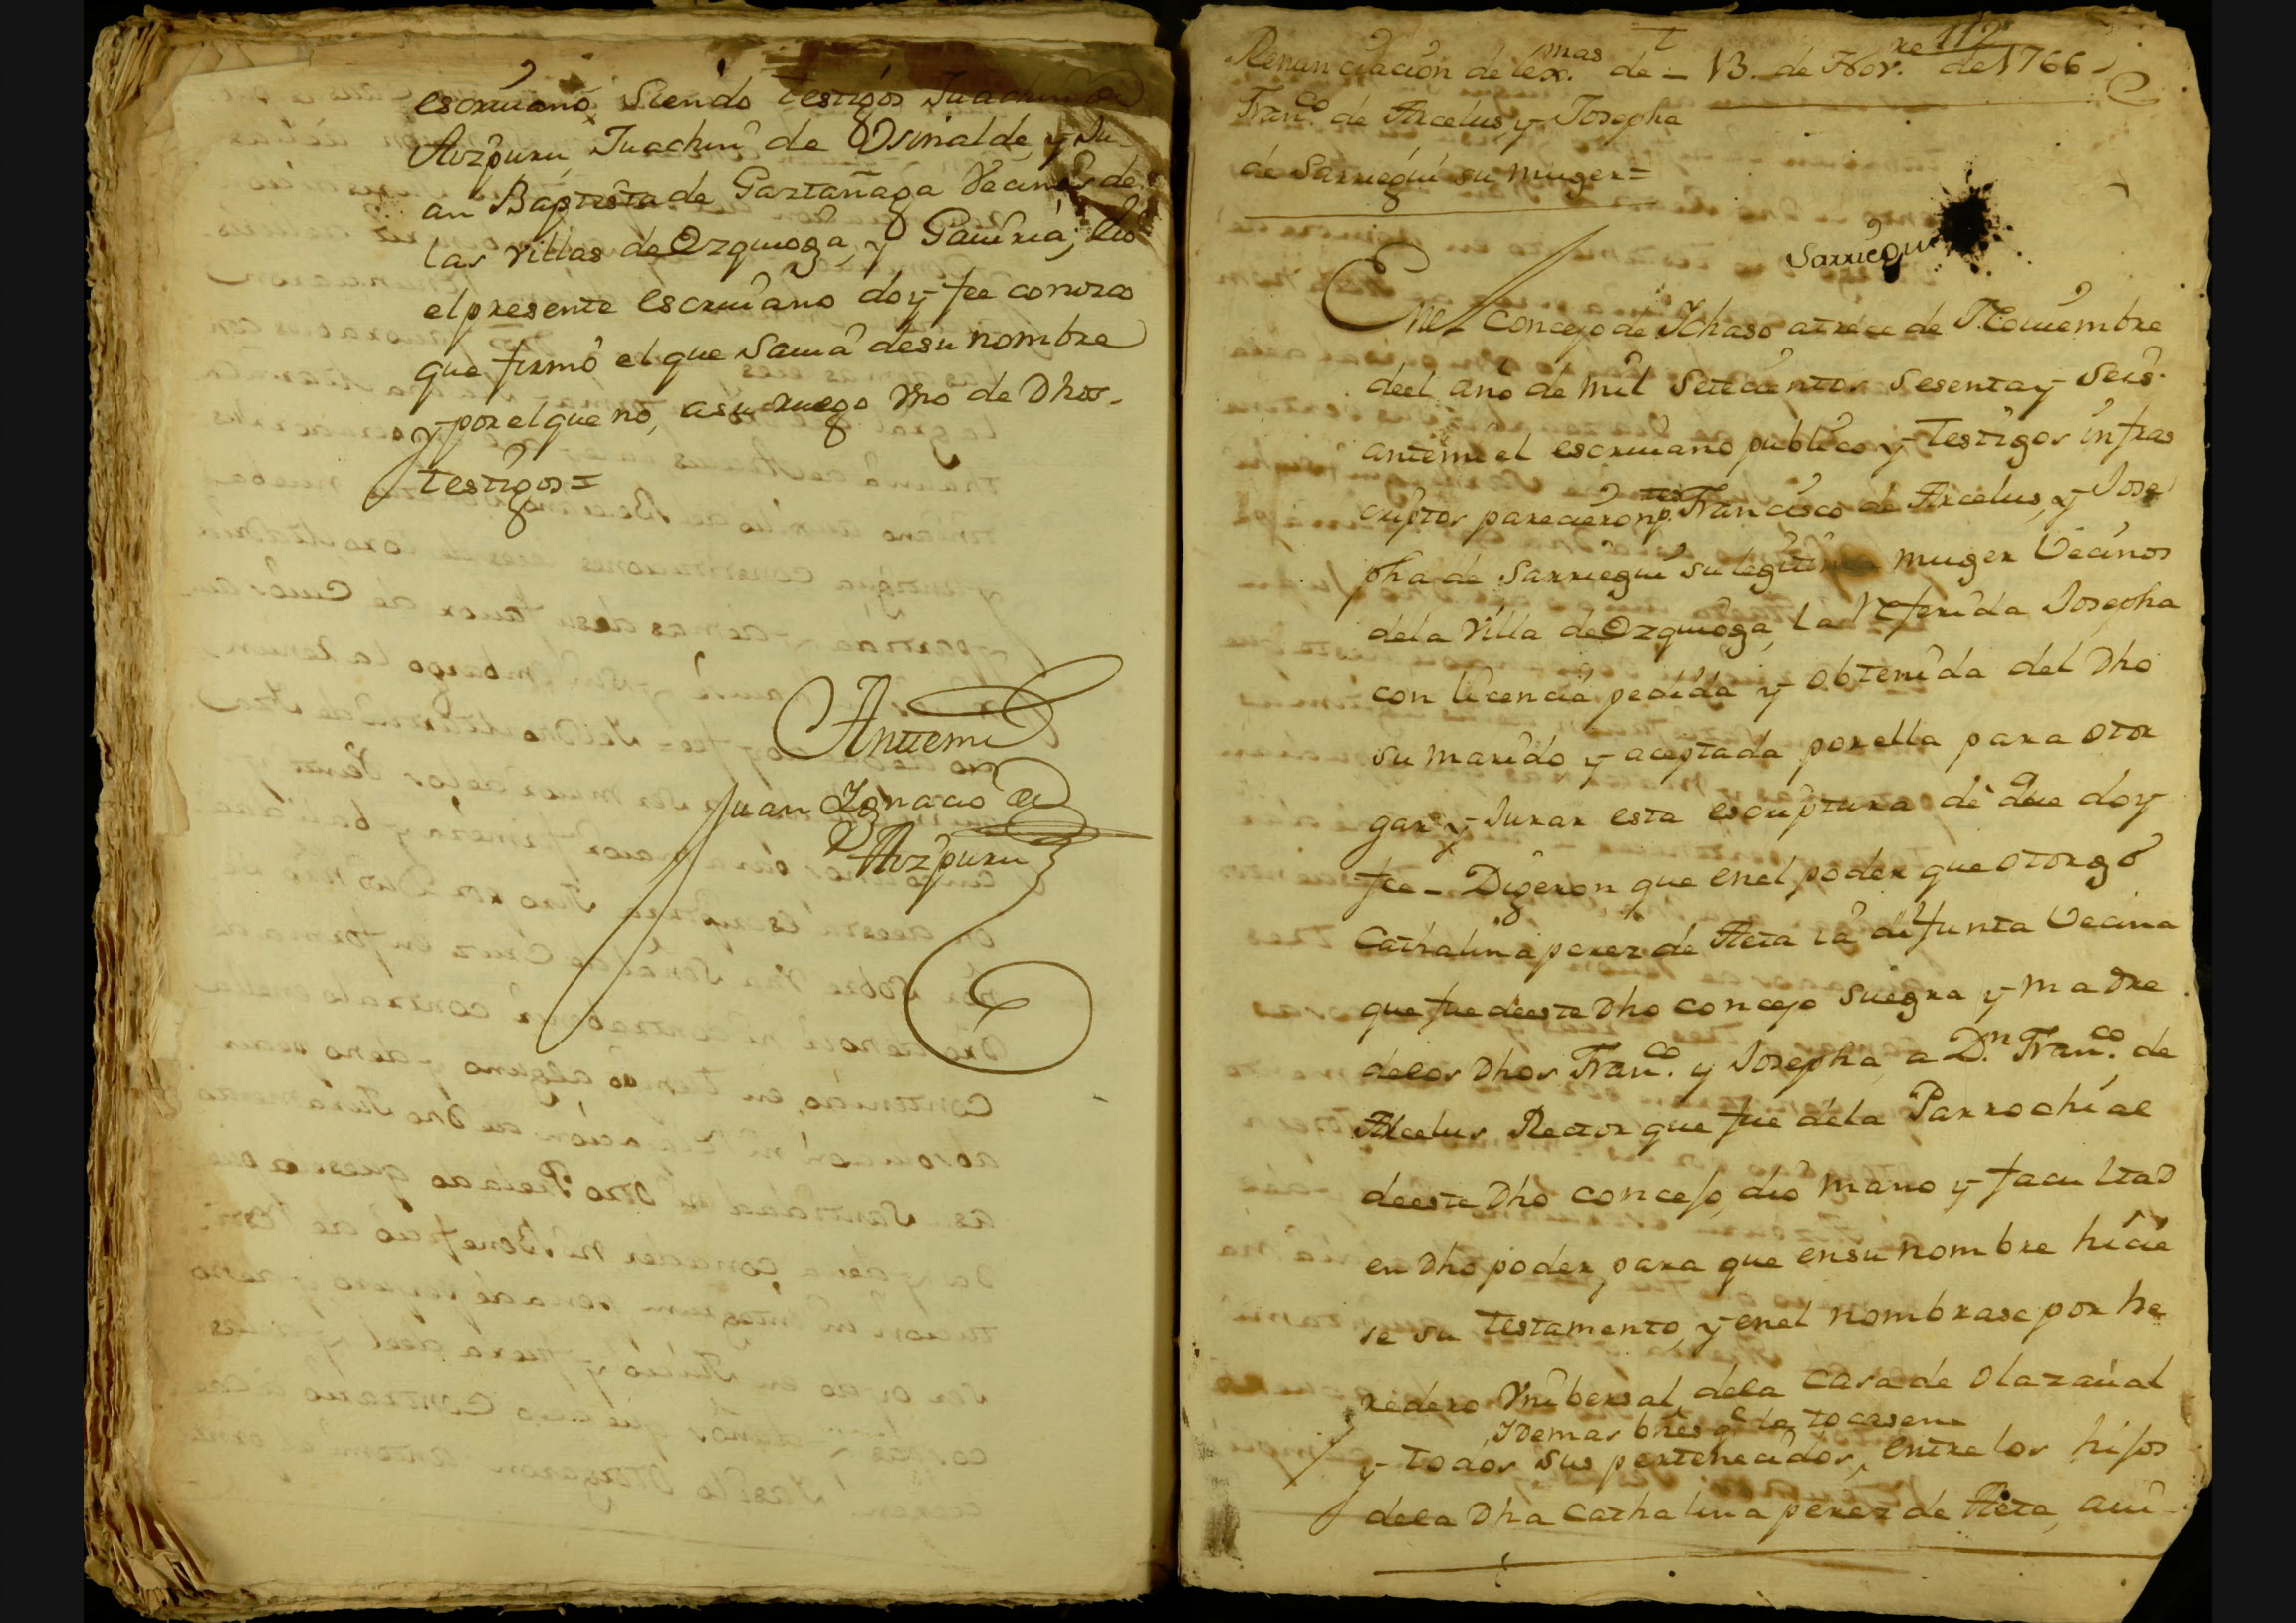 escriuano, Siendo testigos Juachin de
Aizpuru, Juachin de Orinalde, y Ju-
an Baptista de Gaztañaga Vecinos de
las Villas de Ozquioga, y Gauiria; Yo
el presente escriuano doy fee conozco
que firmò el que Sauia de su nombre
y por el que no, a su ruego Vno de Dhos.
testigos=
Anttemi
Juan Ignacio de
Aizpuru
112
Renunciacion de lex.mas de - 13. de Nov.re de 1766
Fran.co de Arcelus, y Josepha
de Sarriegui su muger=
Sarriegui
En el Concejo de Ichaso a trece de Nouiembre
deel año de mil Setecientos Sesenta y Seis
antemi el escriuano publico y testigos infras
criptos parecieron p.tes Francisco de Arcelus, y Jose
pha de Sarriegui su legitima muger Vecinos
dela Villa de Ozquioga, la referida Josepha
con licencia pedida y obtenida del Dho
su marido y aceptada por ella para otor
gar y Jurar esta escriptura de que doy
fee - Digeron que enel poder que otorgò
Cathalina perez de Aeta la difunta Vecina
que fue deeste Dho concejo Suegra y madre
delos Dhos Fran.co y Josepha, a D.n Fran.co de
Arcelus Rector que fue dela Parrochial
deeste Dho concejo, dio mano y facultad
en Dho poder, para que ensu nombre hicie
se su testamento, y enel nombrase por he
redero Vnibersal, dela Casa de Olazaual
y demas bñes q.e la tocasen
y todos sus pertenecidos, entre los hijos
dela Dha Cathalina perez de Aeta, aui-